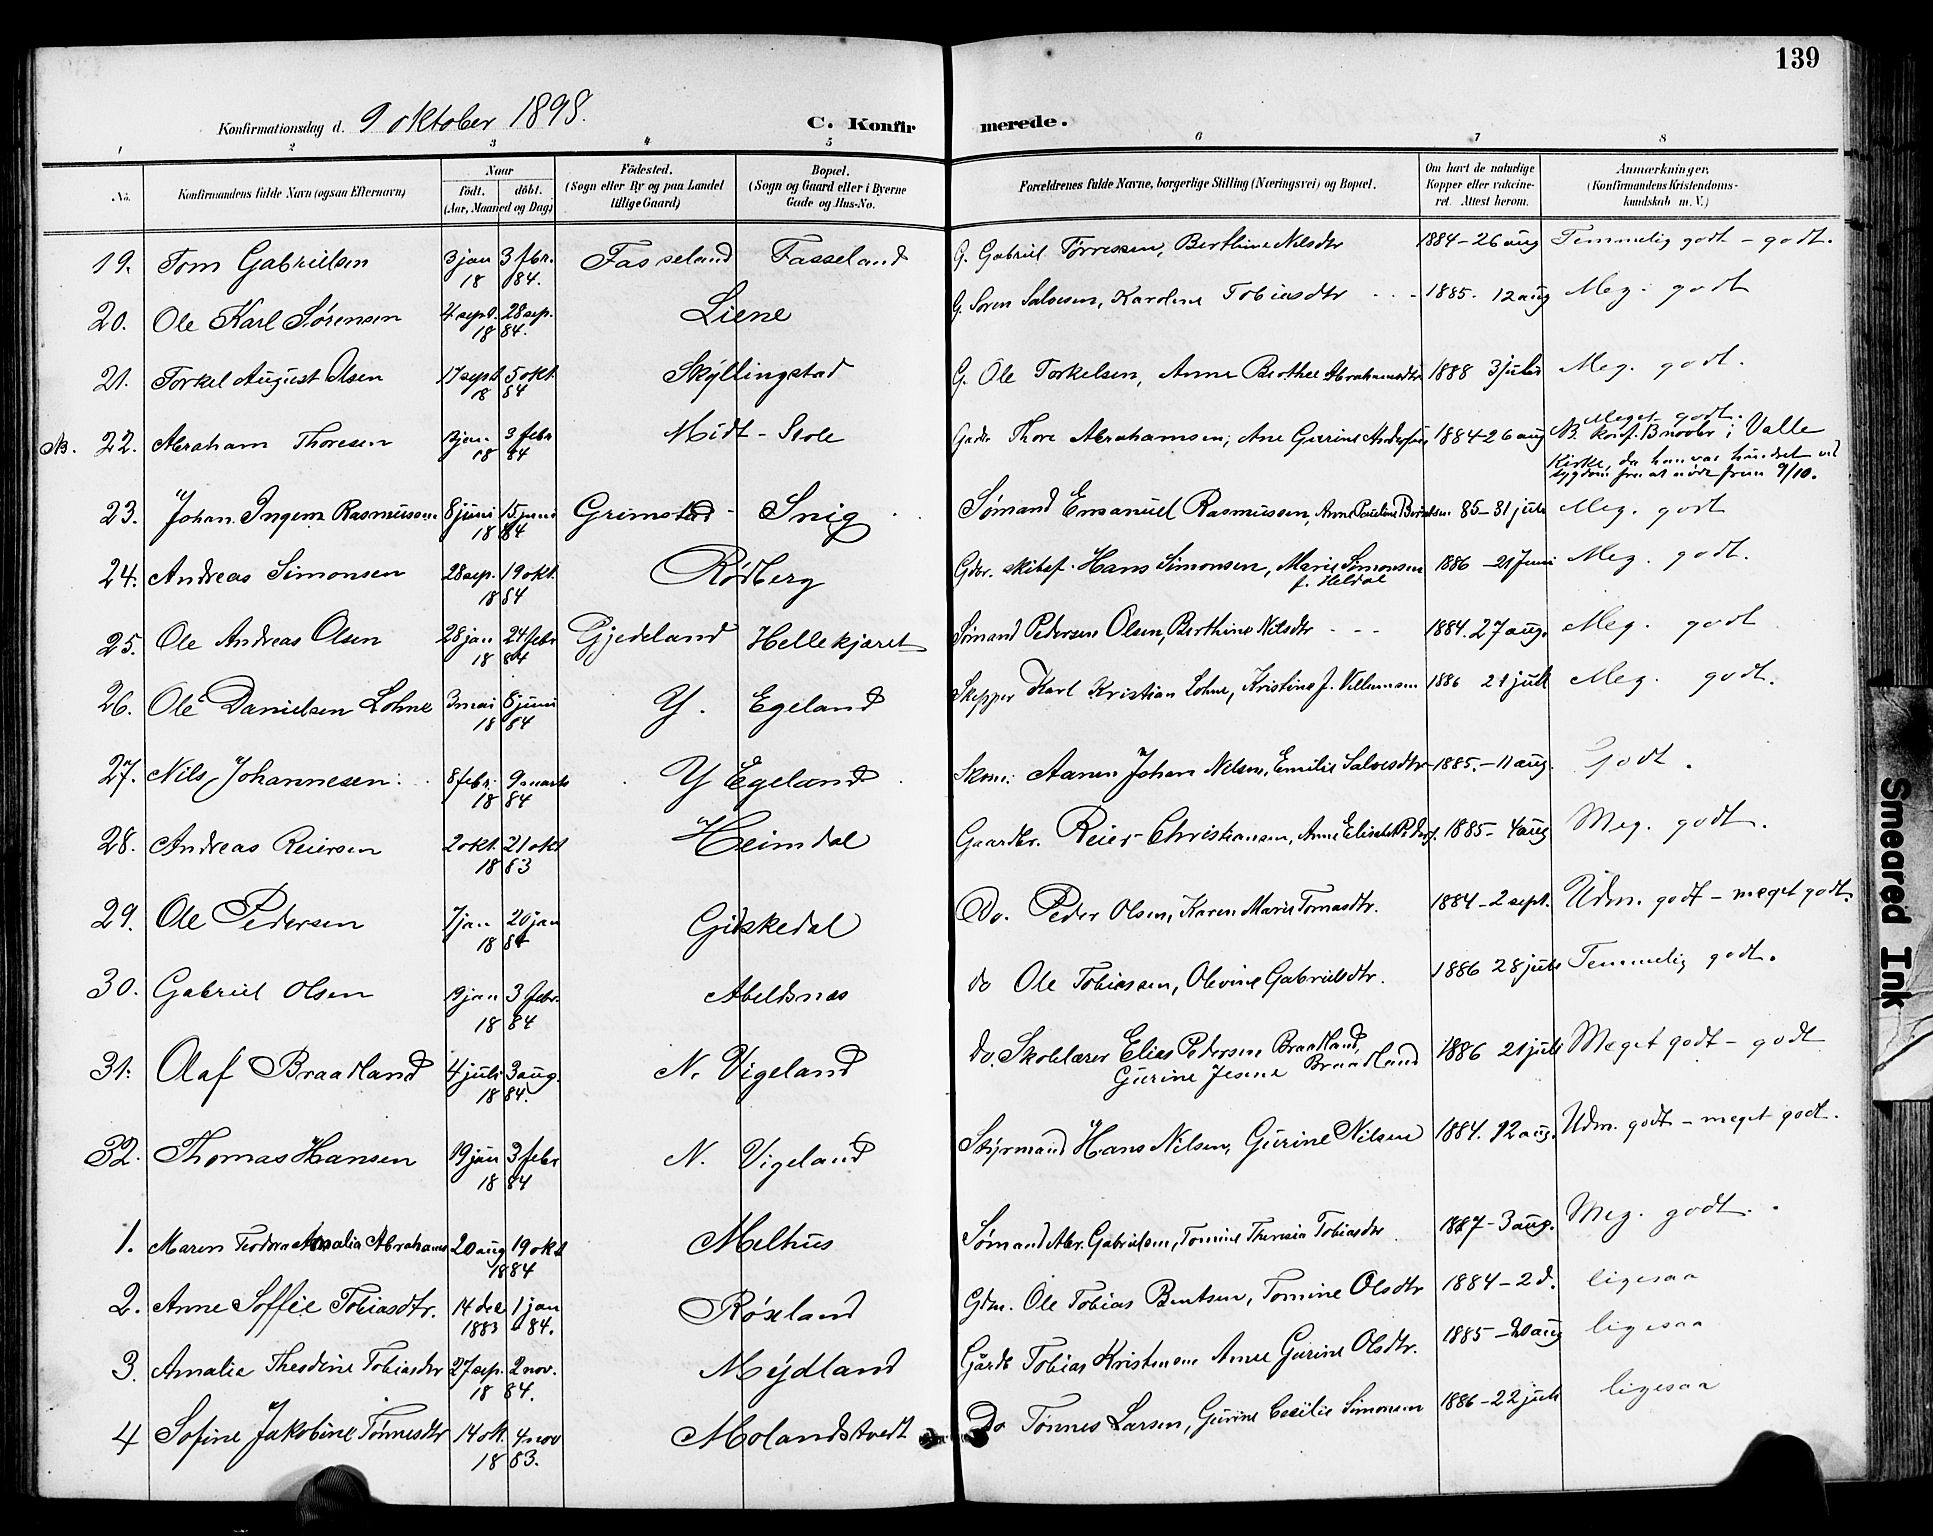 139
Konfirmationsdag d. 9 oktober 1898.
C. Konfirmerede.
1 2 3 4 5 6 7 8
No.
Konfirmandens fulde Navn (ogsaa Efternavn)
Naar
født. døbt.
(Aar, Maaned og Dag)
Fødested.
(Sogn eller By og paa Landet
tillige Gaard)
Bopæl.
(Sogn og Gaard eller i Byerne
Gade og Hus-No.
Forældrenes fulde Navne, borgerlige Stilling (Næringsvei) og Bopæl.
Om havt de naturlige
Kopper eller vakcine-
ret. Attest herom.
Anmærkninger,
(Konfirmandens Kristendoms-
kundskab m. V.)
19. Tom Gabrielsen 3 jan 3 febr. Fasseland Fasseland G. Gabriel Tørressen, Berthine Nilsdtr 1884-26 aug Temmelig godt - godt.
18 84.
20. Ole Karl Sørensen 4 sept. 28 sep. Liene G. Søren Salvesen, Karoline Tobiasdtr 1885. 12 aug Meg. godt
18 84.
21. Torkel August Olsen 17 sept 5 okt. Skyllingstad G. Ole Torkelsen, Anne Berthee Abrahamsdtr 1888 3 juli Meg. godt.
18 84
NB. 22. Abraham Thoresen jan. 3 febr Midt-Skole Thore Abrahamsen, Ane Gurine 1884-26 aug Meget godt.
18 84
NB. Konf. i Valle
Kirke, da han var hindret ved
sygdom fra at møde frem 9/10.
23. Johan Ingem Rasmussen 8 juni 15 juni Grimstad - Snig Sømand Emanuel Rasmussen, Anne Pauline 85-31 juli Meg. godt
18 84
24. Andreas Simonsen 28 sep. 19 okt. Rødberg Gdbr. Hans Simonsen, Marie Simonsen 1886 - 21 Juni Meg. godt.
f. Heldal
18 84
25. Ole Andreas Olsen 28 jan 24 febr Gjedeland Hellekjæret Sømand Pedersen Olsen, Berthine Nilsdtr - - - 1884. 27 aug. Meg. godt
18 84
26. Ole Danielsen Lohne 3 mai 8 juni Y. Egeland Skipper Karl Kristian Lohne, Kristine f. Villumsen 1886 21 juli Meg. godt.
18 84
27. Nils Johannesen 8 febr. 9 marts Y Egeland Skom. Aanen Johan Nilsen, Emilie Salvesdtr 1885.-11 aug. Godt.
18 84
28. Andreas Reiersen 2 okt. 21 okt Heimdal Gaardbr. Reier Christiansen, Anne Elisabet 1885-4 aug Meg. godt.
18 83
29. Ole Pedersen 7 jan 20 jan Gidskedal Do. Peder Olsen, Karen Marie Tomasdtr. 1884-2 sept. Udm. godt - meget godt.
18 84
30. Gabriel Olsen 19 jan 3 febr. Abeldsnæs do Ole Tobiassen, Olevine Gabrielsdtr. 1886 28 juli Temmelig godt.
18 84
31. Olaf Braadland 4 juli 3 aug. N. Vigeland do. Skolelærer Elias Pedersen Braadland, 1886 21 juli Meget godt - godt
Gurine Jesine Braadland
18 84.
32. Thomas Hansen 19 jan 3 febr N. Vigeland Styrmand Hans Nilsen, Gurine Nilsen 1884. 12 aug. Udm. godt - meget godt.
18 84
1. Maren Teodora Amalia Abrahams 20 aug 19 okt Melhus Sømand Abr. Gabrielsen, Tomine Theresia Tobiasdtr 1887-3 aug. Meg. godt.
1884
2. Anne Soffie Tobiasdtr. 14 dec 1 jan Røseland Gdm. Ole Tobias Bentsen, Tomine Olsdtr 1884-2 d. ligesaa
1883 84.
3. Amalie Thesdine Tobiasdtr 27 sep. 2 nov. Mydland Gårdb Tobias Anne Gurine Olsdtr. 1885-20 aug ligesaa
18 84.
4 Sofine Jakobine Tønnesdtr 14 okt. 4 nov Molandstvedt Do Tønnes Larsen, Gurine Cecilie Simonsen 1886-22 juli ligesaa
18 83.
Smeared Ink